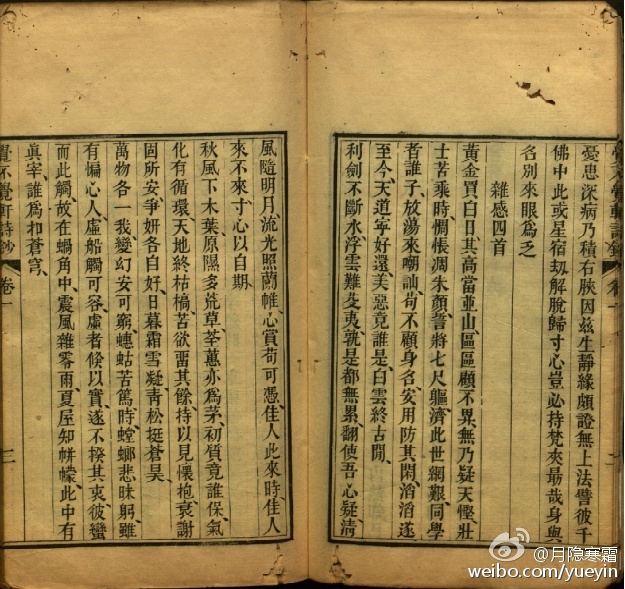 憂患深病乃積右脥因茲生靜緣頗證無上法譬彼千
佛中此或星宿劫解脫歸寸心豈必持梵夾勗哉身與
名別來眼爲乏
雜感四首
黃金買白日其高當並山區區顧不異無乃疑天慳壯
士苦乘時惆悵凋朱顏誓將七尺軀濟此世網艱同學
者誰子放蕩來嘲訕苟不顧身名安用防其閑滔滔遂
至今天道寧好還美惡竟誰是白雲終古閒
利劍不斷水浮雲難㕛夷孰是都無累翻使吾心疑淸
風隨明月流光照蘭帷心賞苟可憑佳人此來時佳人
來不來寸心以自期
秋風下木葉原隰多兟草莘蕙亦爲茅初質竟誰保氣
化有循環天地終枯槁苦欲留其餘持以見懷抱哀謝
固所安爭妍各自好日暮霜雪凝靑松挺蒼昊
萬物各一我變幻安可窮蟪蛄苦篤時螳螂悲昧躬雖
有惼心人虛船觸可容虛者倏以實遂不揆其衷彼蠻
而此觸故在蝸角中震風雜零雨夏屋知帡幪此中有
眞宰誰爲扣蒼穹
覺不覺軒詩鈔
卷一
三
月隐寒霜
weibo.com/yueyin